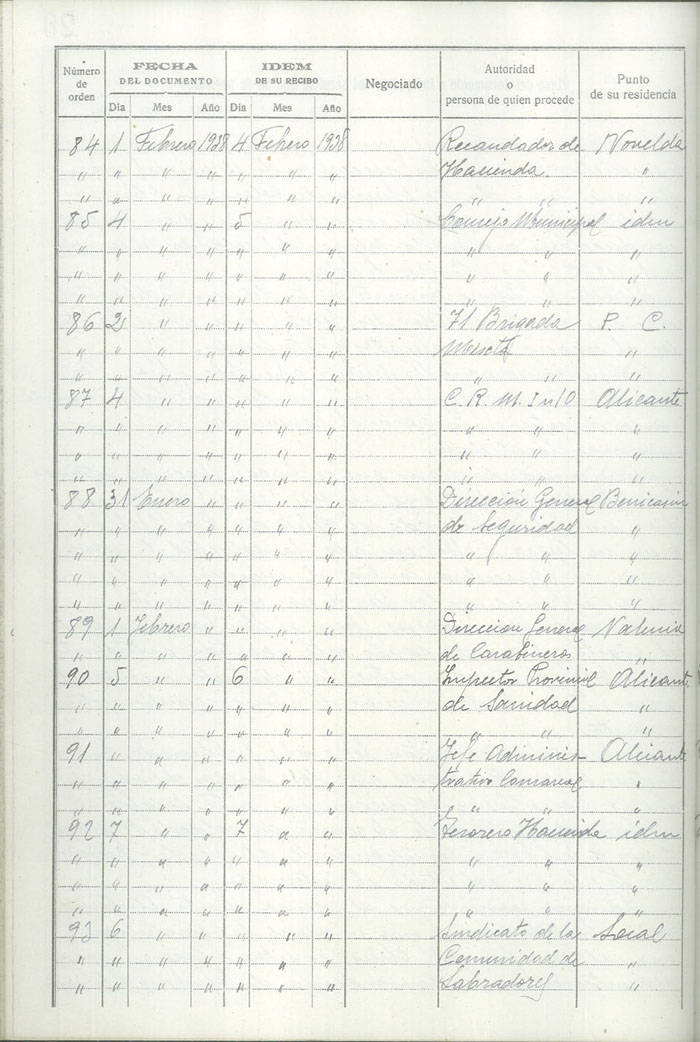 Número de orden FECHA DEL DOCUMENTO IDEM DE SU RECIBO Negociado Autoridad o persona de quien procede Punto de su residencia
Dia Mes Año Dia Mes Año
84 1 Febrero 1938 4 Febrero 1938 Recaudador de Novelda
" " " " " " " Hacienda. "
" " " " " " " " " "
85 4 " " 5 " " Consejo Municipal idm
" " " " " " " " " "
" " " " " " " " " "
" " " " " " " " " "
86 2 " " " " " 71 Brigada P. C.
" " " " " " " Mixta "
" " " " " " " " " "
87 4 " " " " " C. R. M. I nº 10 Alicante
" " " " " " " " " "
" " " " " " " " " "
" " " " " " " " " "
88 31 Enero " " " " Dirección General
" " " " " " " de Seguridad "
" " " " " " " " " "
" " " " " " " " " "
" " " " " " " " " "
89 1 Febrero " " " " Direccion General Valencia
" " " " " " " de Carabineros "
90 5 " " 6 " " Inspector Provincil Alicante
" " " " " " " de Sanidad "
" " " " " " " " " "
91 " " " " " " Jefe Adminis- Alicante
" " " " " " " trativo Comarcal "
" " " " " " " " " "
92 7 " " 7 " " Tesorero Hacienda idm
" " " " " " " " " "
" " " " " " " " " "
" " " " " " " " " "
93 6 " " " " " Sindicato de la Local
" " " " " " " Comunidad de "
" " " " " " " Labradores "